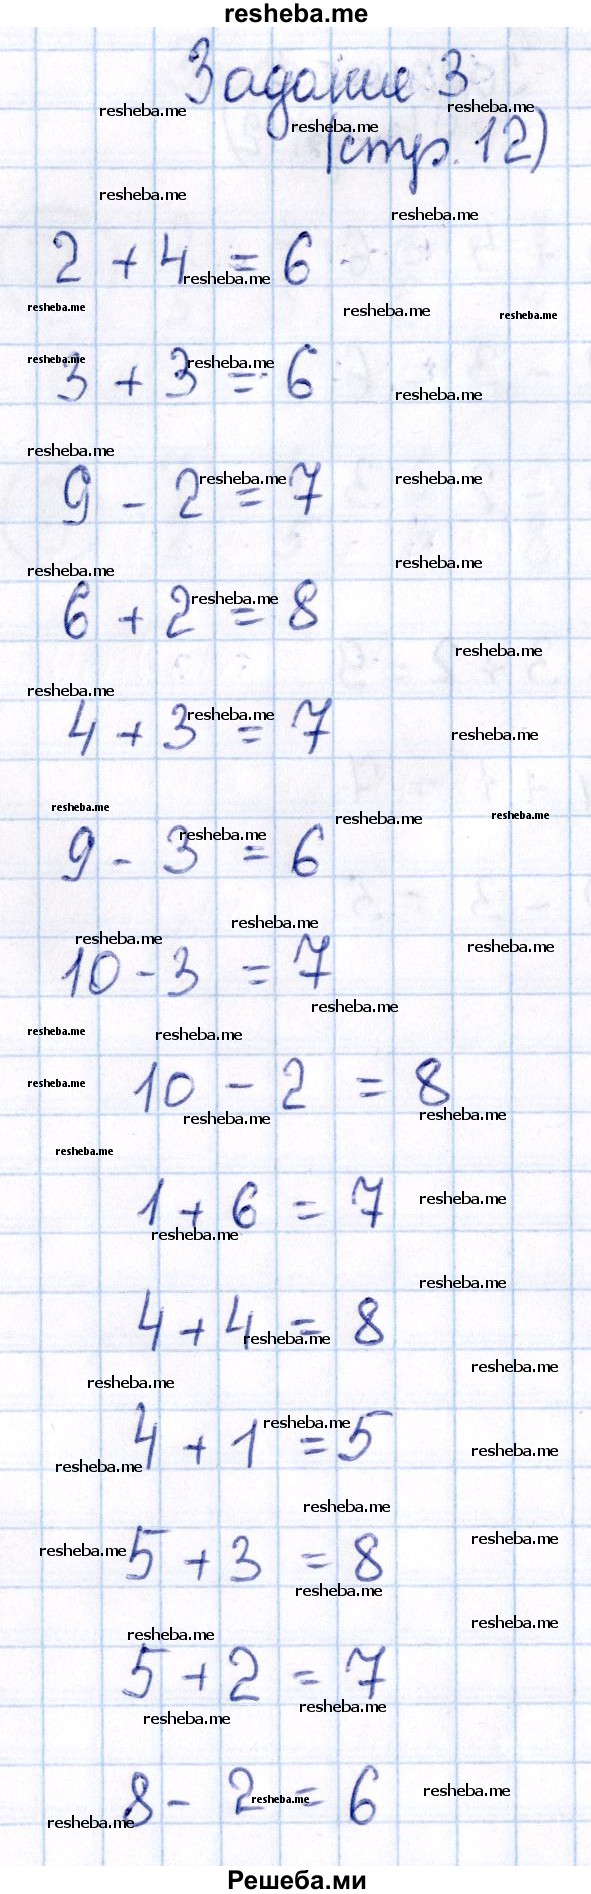 resheba.me
Задание 3
(стр. 12)
2 + 4 = 6
3 + 3 = 6
9 - 2 = 7
6 + 2 = 8
4 + 3 = 7
9 - 3 = 6
10 - 3 = 7
10 - 2 = 8
1 + 6 = 7
4 + 4 = 8
4 + 1 = 5
5 + 3 = 8
5 + 2 = 7
8 - 2 = 6
Решеба.ми